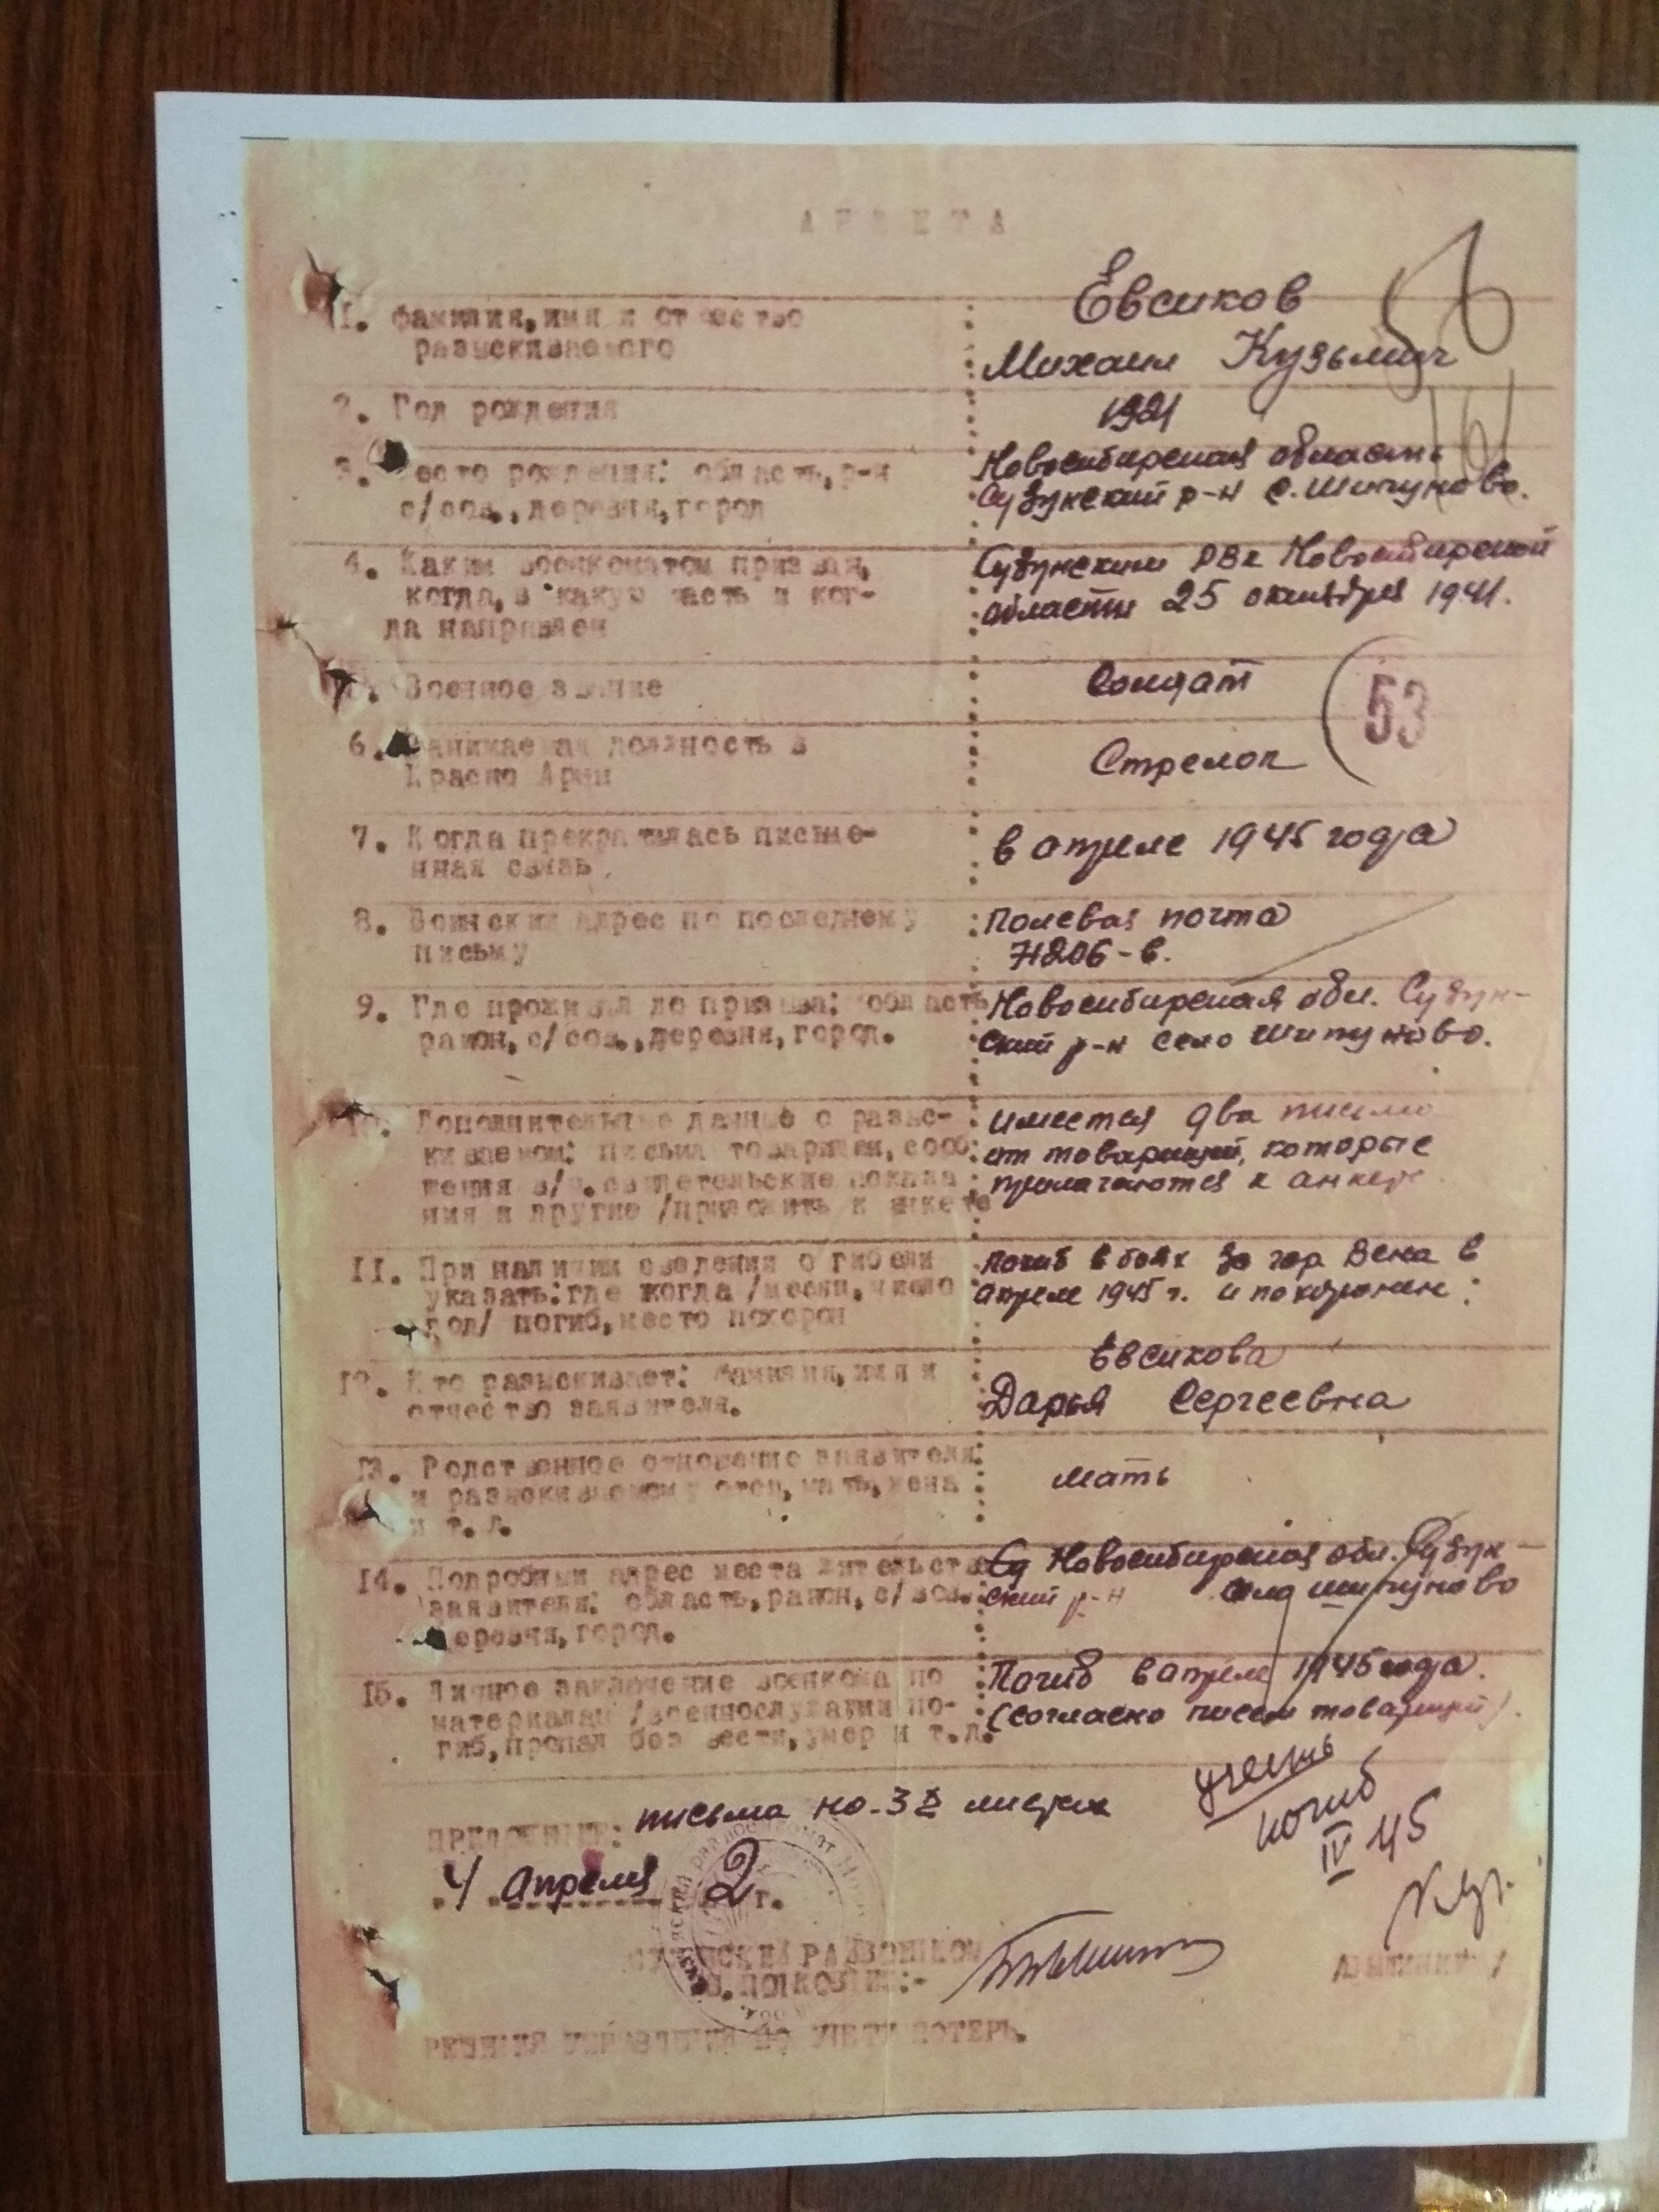 АНКЕТА
1. Фамилия, имя и отчество
разыскиваемого
Евсиков
Михаил Кузьмич
2. Год рождения
1921
3. Место рождения: область, р-н
с/сов., деревня, город
Новосибирская область
Сузунский р-н с. Шипуново.
4. Каким военкоматом призван,
когда, в какую часть и ког-
да направлен
Сузунским РВК Новосибирской
области 25 октября 1941.
5. Военное звание
Солдат
53
6. Занимаемая должность в
Красно Арми
Стрелок
7. Когда прекратилась письме-
нная связь
в апреле 1945 года
8. Воинский адрес по последнему
письму
Полевая почта
71206-в.
9. Где проживал до призыва: область
район, с/сов., деревня, город.
Новосибирская обл. Сузун-
ский р-н село Шипуново.
10. Дополнительные данные о разыс-
киваемом: письма товарищей, сооб
щения в/ч. свидетельские показа
ния и другие /приложить к анкете
имеется два письма
от товарищей, которые
прилагаются к анкете
11. При наличии сведения о гибели
указать: где когда /месяц, число
год/ погиб, место похорон
погиб в боях за гор Вена в
апреле 1945 г. и похоронен
12. Кто разыскивает: фамилия, имя и
отчество заявителя.
Евсикова
Дарья Сергеевна
13. Родственное отношение заявителя
к разыскиваемому отец, мать, жена
и т. д.
мать
14. Подробный адрес места жительства
заявителя: область, район, с/сов.
деревня, город.
Новосибирская обл. Сузун-
ский р-н село Шипуново
15. Личное заключение военкома по
материалам /военнослужащий по-
гиб, пропал без вести, умер и т.д.
Погиб в апреле 1945 года.
(согласно писем товарищей).
ПРИЛОЖЕНИЕ: письма на 3х листах
учесть
погиб
IV 45
4 апреля 2 г.
СУЗУНСКИЙ РАЙВОЕНКОМ
П.ПОЛКОВНИК:-
РЕШЕНИЯ УПРАВЛЕНИЯ ПО УЧЕТУ ПОТЕРЬ.